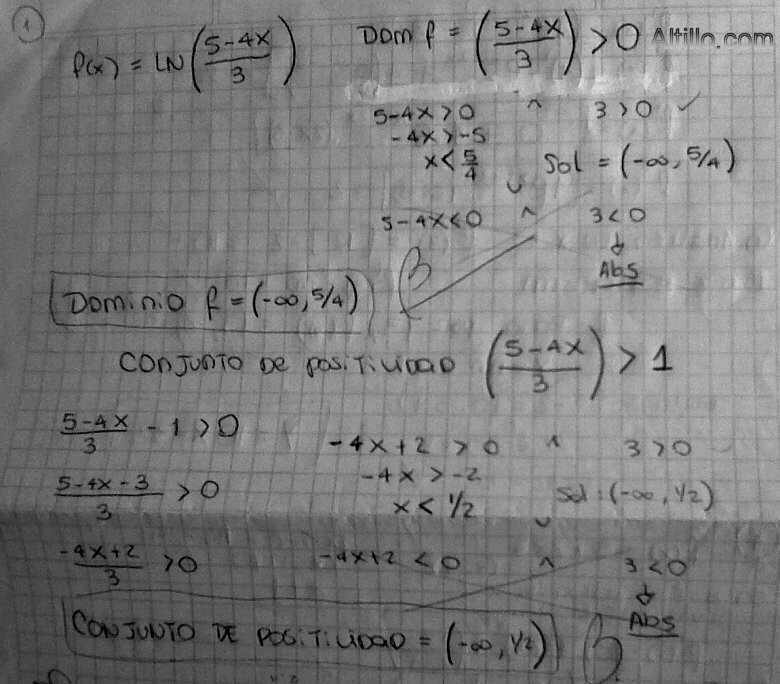 1
f(x) = LN((5-4x)/3) Dom f = ((5-4x)/3) > 0 Altillo.com
5-4x > 0 ^ 3 > 0 ✓
-4x > -5
x < 5/4 Sol = (-∞, 5/4)
∪
5-4x < 0 ^ 3 < 0
↓
Abs
Dominio f = (-∞, 5/4) B
Conjunto de positividad ((5-4x)/3) > 1
(5-4x)/3 - 1 > 0 -4x+2 > 0 ^ 3 > 0
-4x > -2
(5-4x-3)/3 > 0 x < 1/2 Sol: (-∞, 1/2)
∪
(-4x+2)/3 > 0 -4x+2 < 0 ^ 3 < 0
↓
Abs
Conjunto de positividad = (-∞, 1/2) B